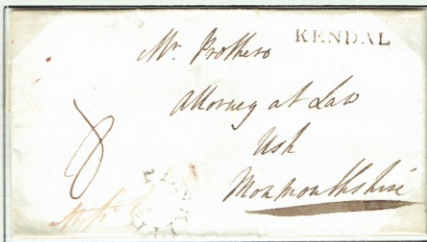 KENDAL
Mr. Prothero
Attorney at Law
Usk
Monmouthshire
8